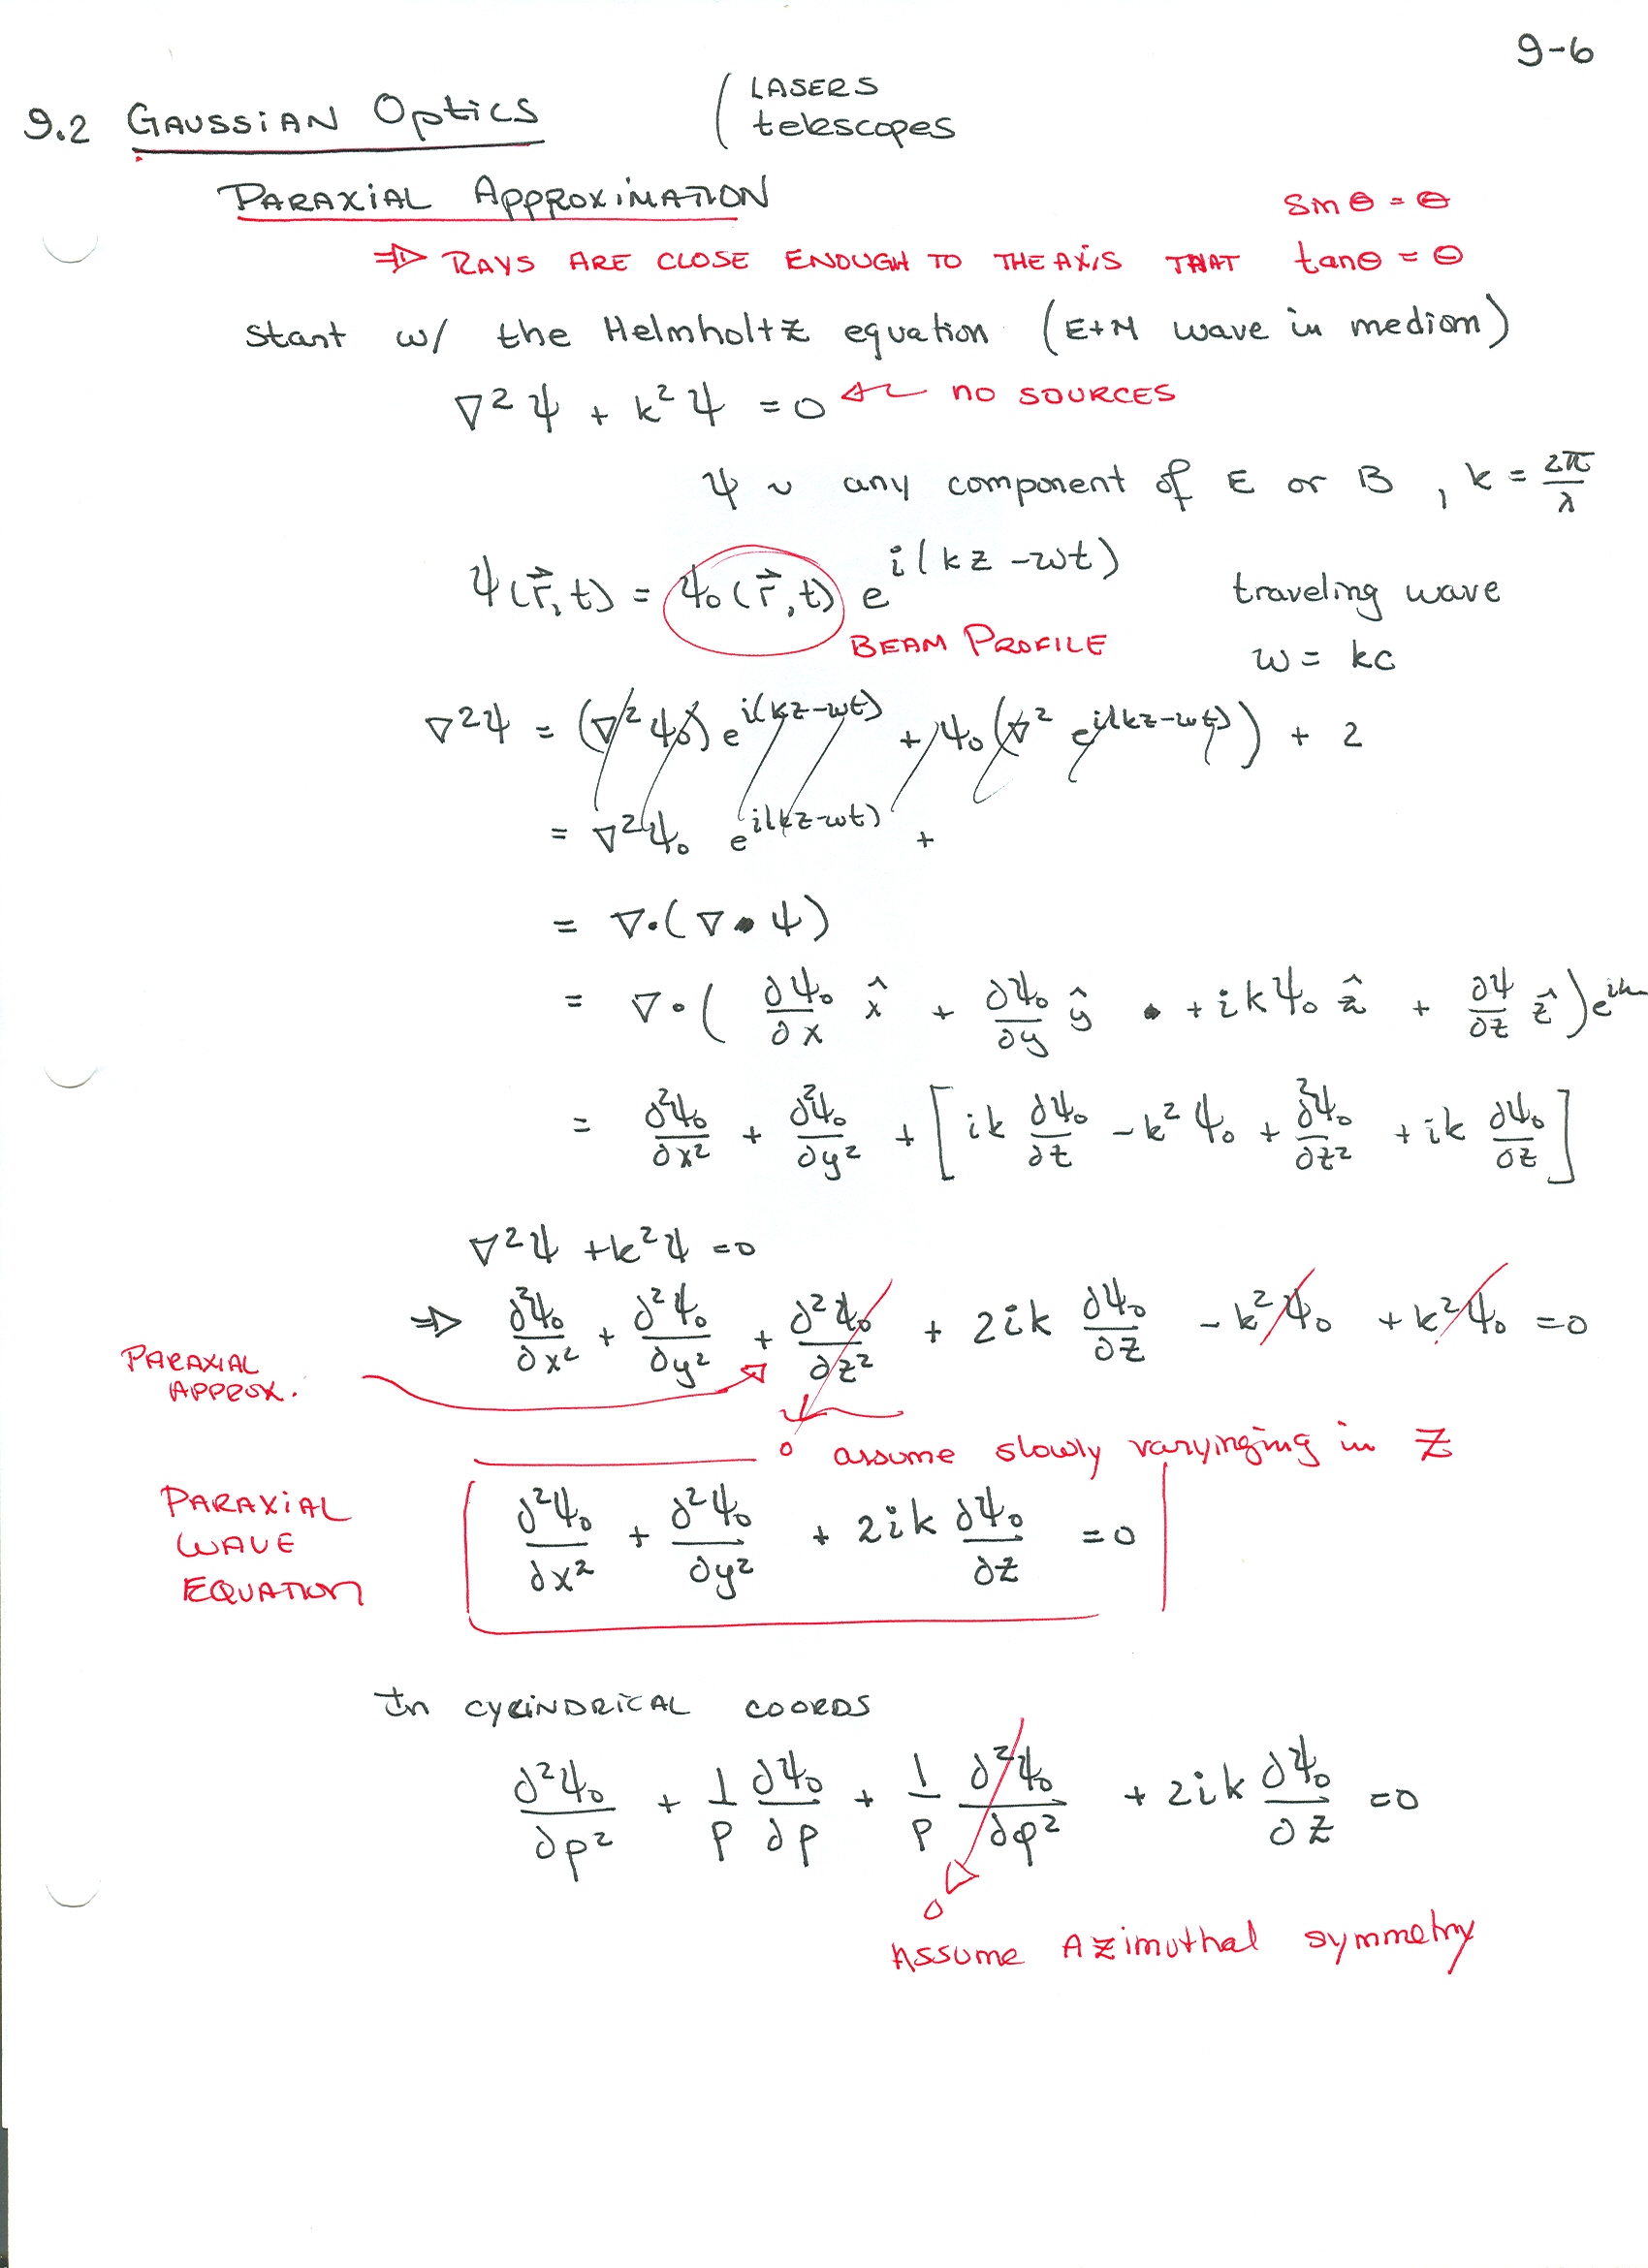 9-6
9.2 GAUSSIAN Optics ( LASERS
telescopes
PARAXIAL APPROXIMATION
sin θ = θ
⇒ RAYS ARE CLOSE ENOUGH TO THE AXIS THAT tanθ = θ
start w/ the Helmholtz equation (E+M wave in mediom)
∇²ψ + k²ψ = 0 ← NO SOURCES
ψ ~ any component of E or B , k = 2π/λ
ψ(r⃗,t) = ψ₀(r⃗,t) e^{i(kz-ωt)} traveling wave
BEAM PROFILE ω = kc
∇²ψ = (∇²ψ₀) e^{i(kz-ωt)} + ψ₀(∇² e^{i(kz-ωt)}) + 2
= ∇²ψ₀ e^{i(kz-ωt)} +
= ∇·(∇ ψ)
= ∇·( ∂ψ₀/∂x x̂ + ∂ψ₀/∂y ŷ + ikψ₀ ẑ + ∂ψ/∂z ẑ )e^{ik
= ∂²ψ₀/∂x² + ∂²ψ₀/∂y² + [ ik ∂ψ₀/∂z - k²ψ₀ + ∂²ψ₀/∂z² + ik ∂ψ₀/∂z ]
∇²ψ + k²ψ = 0
⇒ ∂²ψ₀/∂x² + ∂²ψ₀/∂y² + ∂²ψ₀/∂z² + 2ik ∂ψ₀/∂z - k²ψ₀ + k²ψ₀ = 0
PARAXIAL
APPROX.
0 assume slowly varyinging in z
PARAXIAL
WAVE
EQUATION
∂²ψ₀/∂x² + ∂²ψ₀/∂y² + 2ik ∂ψ₀/∂z = 0
In CYLINDRICAL COORDS
∂²ψ₀/∂ρ² + 1/ρ ∂ψ₀/∂ρ + 1/ρ ∂²ψ₀/∂φ² + 2ik ∂ψ₀/∂z = 0
0
ASSUME AZimuthal symmetry